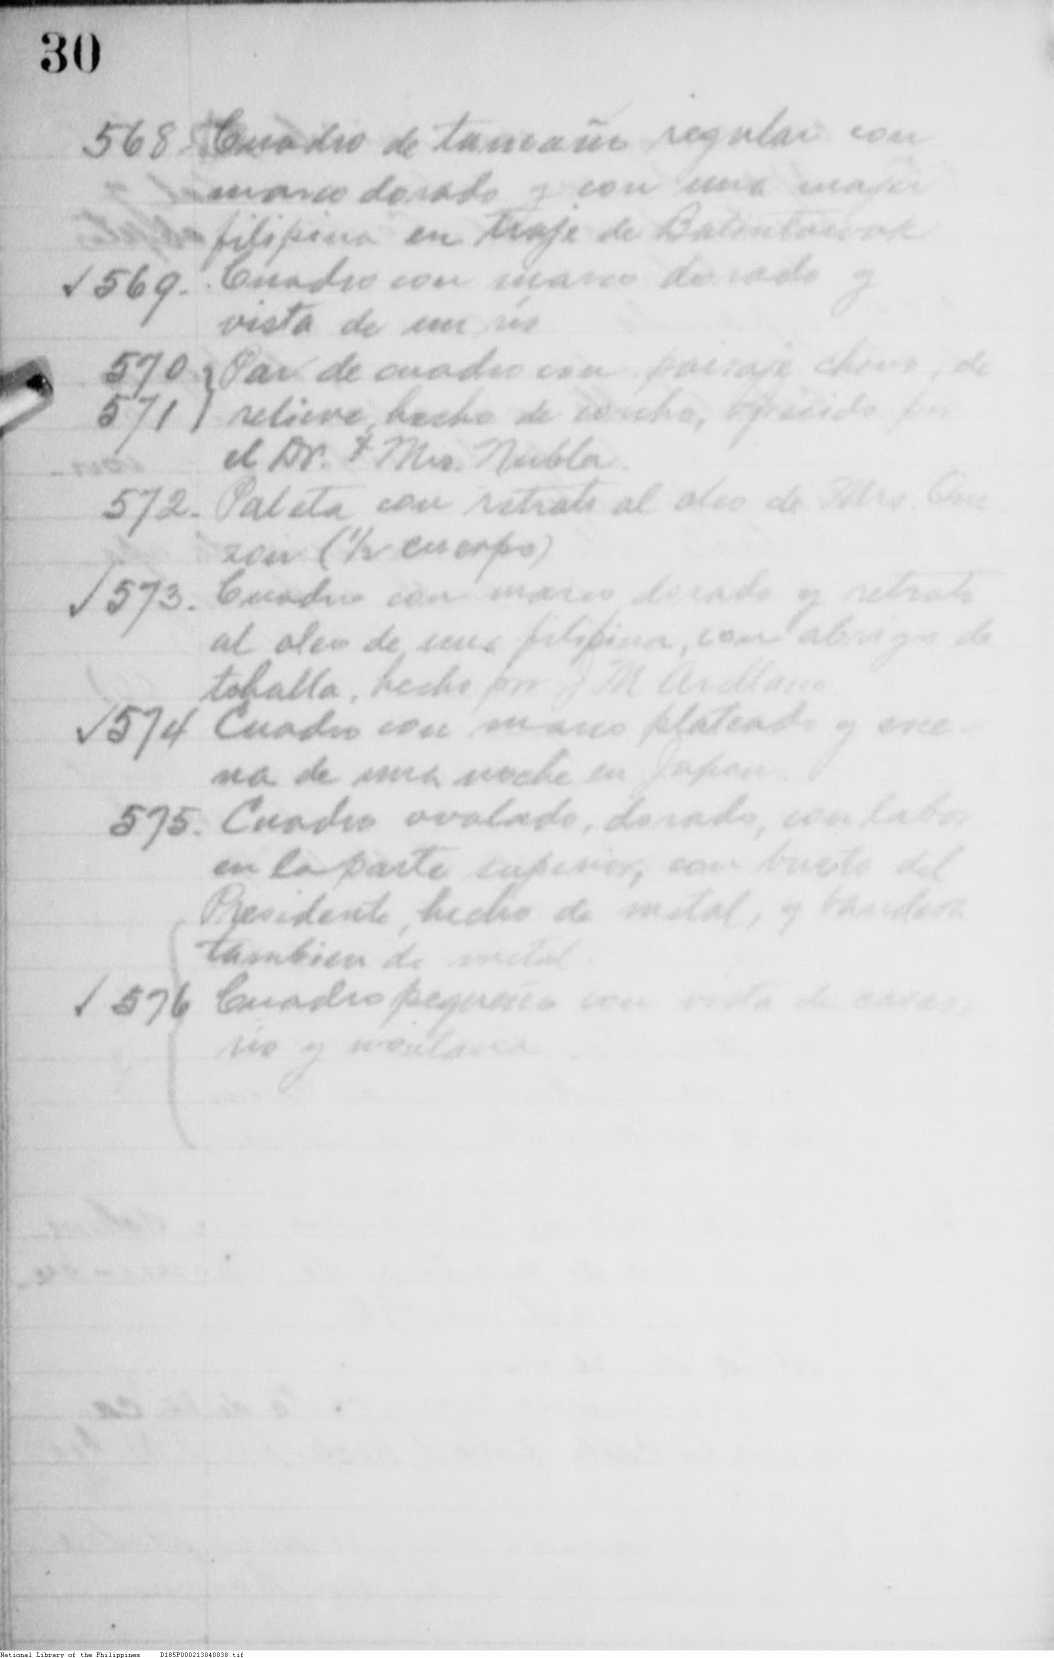 30
568. Cuadro de tamaño regular con
marco dorado y con una mujer
filipina en traje de Balintawak
√ 569. Cuadro con marco dorado y
vista de un rio
570 } Par de cuadro con paisaje chino, de
571 } relieve, hecho de corcho, ofrecido por
el Dr. & Mrs. Nubla.
572. Paleta con retrato al oleo de Mrs. Que
zon (1/2 cuerpo)
√ 573. Cuadro con marco dorado y retrato
al oleo de una filipina, con abrigo de
tohalla, hecho por J M Arellano
√ 574 Cuadro con marco plateado y esce-
na de una noche en Japon.
575. Cuadro ovalado, dorado, con labor
en la parte superior, con busto del
Presidente, hecho de metal, y bandera
tambien de metal.
√ 576 Cuadro pequeño con vista de casas,
rio y montaña
National Library of the Philippines D185P000213040838.tif